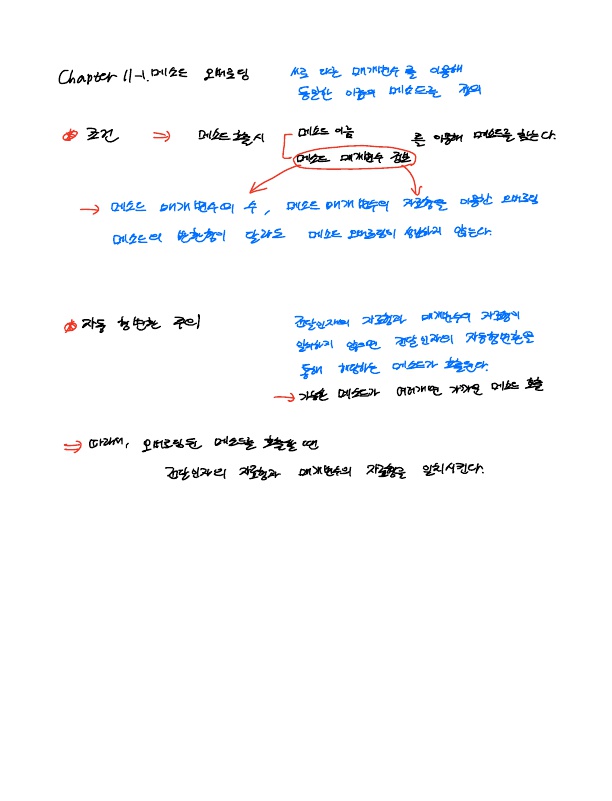 Chapter 11-1. 메소드 오버로딩
서로 다른 매개변수를 이용해
동일한 이름의 메소드를 정의
조건 ⇒ 메소드 호출시
메소드 이름
메소드 매개변수 정보
를 이용해 메소드를 찾는다.
→ 메소드 매개변수의 수, 메소드 매개변수의 자료형을 이용한 오버로딩
메소드의 반환형이 달라도 메소드 오버로딩이 성립하지 않는다.
자동 형변환 주의
전달인자의 자료형과 매개변수의 자료형이
일치하지 않으면 전달인자의 자동형변환을
통해 해당하는 메소드가 호출된다.
→ 가능한 메소드가 여러개면 가까운 메소드 호출
⇒ 따라서, 오버로딩된 메소드를 호출할 땐
전달인자의 자료형과 매개변수의 자료형을 일치시킨다.